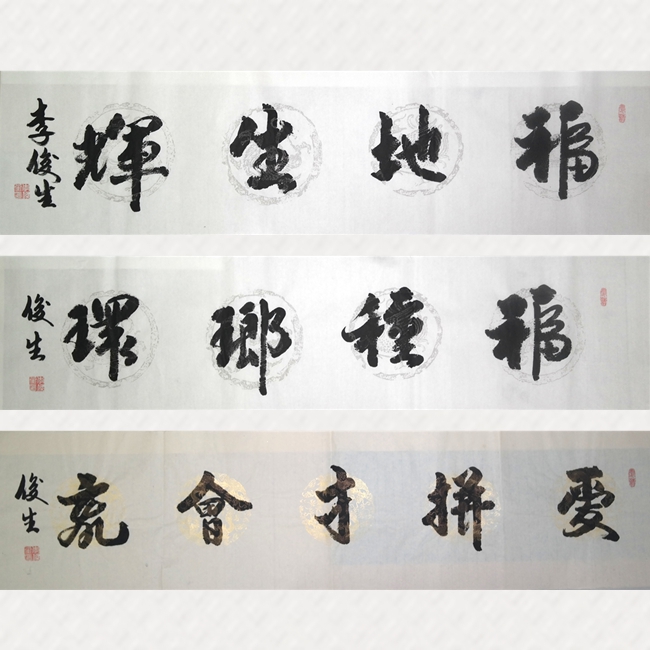 福地生輝
李俊生
福種瑯環
俊生
愛拼才會贏
俊生